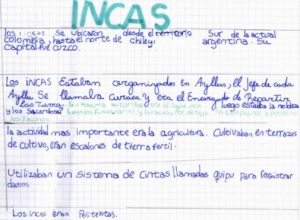 INCAS
los incas se ubicaron desde el territorio Sur de la actual
colombia, hasta el norte de chile y argentina. Su
Capital fue cuzco.
Los INCAS Estaban organizados en Ayllus, el Jefe de cada
Ayllu Se llamaba Curaca y era el Encargado de Repartir
las Tierras. luego estaba la nobleza
y los Sacerdotes
la actividad mas importante era la agricultura. Cultivaban en terrazas
de cultivo, eran escalones de tierra fertil.
Utilizaban un sistema de cintas llamados quipu para registrar
datos
Los incas eran Politeistas.